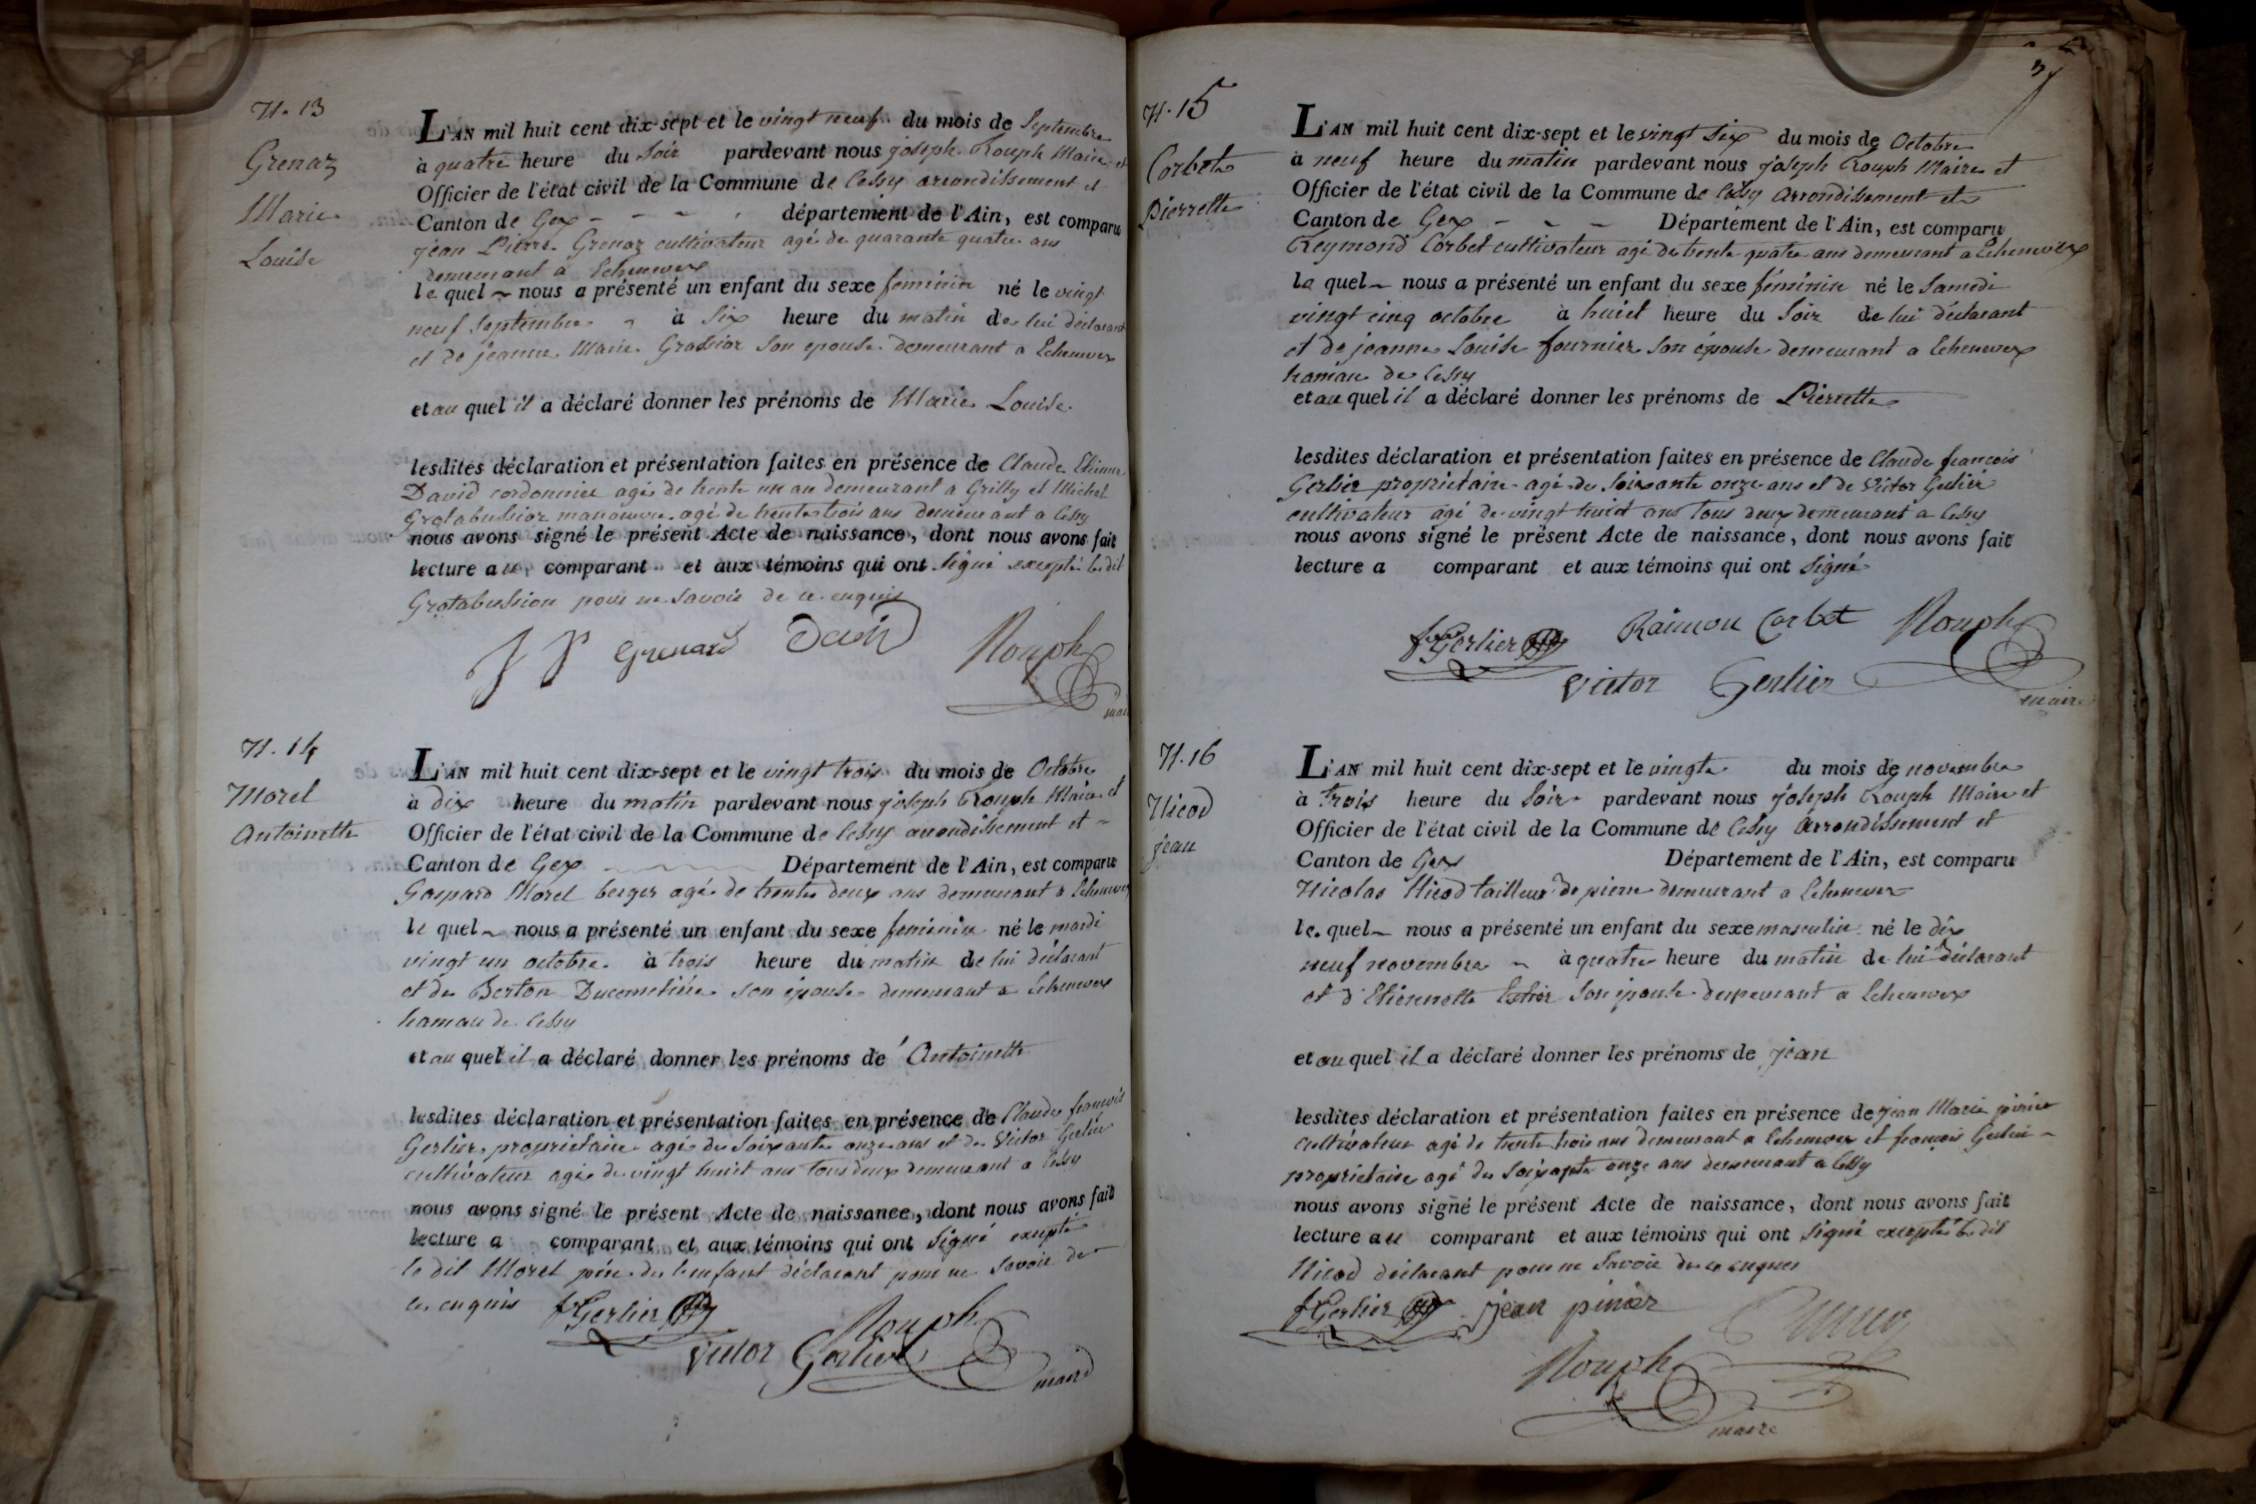 N. 13
Grenaz
Marie
Louise
L'AN mil huit cent dix-sept et le vingt neuf du mois de Septembre
à quatre heure du Soir pardevant nous joseph Rouph Maire et
Officier de l'état civil de la Commune de Cessy arrondissement et
Canton de Gex - - - département de l'Ain, est comparu
jean Pierre Grenaz cultivateur agé de quarante quatre ans
demeurant a Echenevex
le quel ~ nous a présenté un enfant du sexe feminin né le vingt
neuf Septembre à Six heure du matin de lui déclarant
et de jeanne Marie son epouse demeurant a Echenevex
et au quel il a déclaré donner les prénoms de Marie Louise
lesdites déclaration et présentation faites en présence de Claude Etienne
David cordonnier agé de trente un an demeurant a Grilly et Michel
Grotabussior manoeuvre agé de trente trois ans demeurant a Cessy
nous avons signé le présent Acte de naissance, dont nous avons fait
lecture au comparant et aux témoins qui ont Signé excepté le dit
Grotabussion pour ne Savoir de ce enquis
J P Grenard David Rouph
N. 14
Morel
Antoinette
L'AN mil huit cent dix-sept et le vingt trois du mois de Octobre
à dix heure du matin pardevant nous joseph Rouph Maire et
Officier de l'état civil de la Commune de Cessy arrondissement et -
Canton de Gex Département de l'Ain, est comparu
Gaspard Morel berger agé de trente deux ans demeurant a Echenevex
le quel ~ nous a présenté un enfant du sexe feminin né le mardi
vingt un octobre à trois heure du matin de lui déclarant
et de Berton Ducometière son epouse demeurant a Echenevex
hamau de Cessy
et au quel il a déclaré donner les prénoms de Antoinette
lesdites déclaration et présentation faites en présence de Claude francois
Gerlier proprietaire agé de Soixante onze ans et de Victor Gerlier
cultivateur agé de vingt huit ans tous deux demeurant a Cessy
nous avons signé le présent Acte de naissance, dont nous avons fait
lecture a comparant et aux témoins qui ont Signé excepté
le dit Morel père de l'enfant déclarant pour ne Savoir de
ce enquis f Gerlier Rouph
victor Gerlier maire
N. 15
Corbet
Pierrette
L'AN mil huit cent dix-sept et le vingt Six du mois de Octobre
à neuf heure du matin pardevant nous joseph Rouph Maire et
Officier de l'état civil de la Commune de Cessy Arrondissement et
Canton de Gex - - - Département de l'Ain, est comparu
Reymond Corbet cultivateur agé de trente quatre ans demeurant a Echenevex
le quel ~ nous a présenté un enfant du sexe féminin né le Samedi
vingt cinq octobre à huict heure du Soir de lui déclarant
et de jeanne Louise fournier son épouse demeurant a Echenevex
hamau de Cessy
et au quel il a déclaré donner les prénoms de Pierrette
lesdites déclaration et présentation faites en présence de Claude francois
Gerlier proprietaire agé de Soixante onze ans et de Victor Gerlier
cultivateur agé de vingt huict ans tous deux demeurant a Cessy
nous avons signé le présent Acte de naissance, dont nous avons fait
lecture a comparant et aux témoins qui ont Signé
f Gerlier Raimon Corbet Rouph
victor Gerlier maire
N. 16
Nicod
jean
L'AN mil huit cent dix-sept et le vingt du mois de novembre
à trois heure du Soir pardevant nous joseph Rouph Maire et
Officier de l'état civil de la Commune de Cessy Arrondissement et
Canton de Gex Département de l'Ain, est comparu
Nicolas Nicod tailleur de pierre demeurant a Echenevex
le quel ~ nous a présenté un enfant du sexe masculin né le dix
neuf novembre ~ à quatre heure du matin de lui déclarant
et d'Etiennette Son épouse demeurant a Echenevex
et au quel il a déclaré donner les prénoms de jean
lesdites déclaration et présentation faites en présence de jean Marie
cultivateur agé de trente trois ans demeurant a Echenevex et françois Gerlier -
proprietaire agé de Soixante onze ans demeurant a Cessy
nous avons signé le présent Acte de naissance, dont nous avons fait
lecture au comparant et aux témoins qui ont Signé excepté le dit
Nicod déclarant pour ne Savoir de ce enquis
f Gerlier jean pinier
Rouph
maire